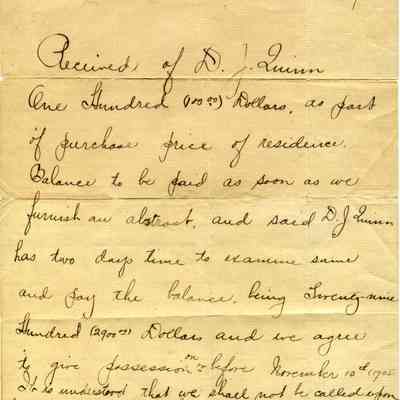 Received of D. J. Quinn
One Hundred (100 00) Dollars, as part
of purchase price of residence.
Balance to be paid as soon as we
furnish an abstract, and said D. J Quinn
has two days time to examine same
and pay the balance, being Twenty-nine
Hundred (2900 00) Dollars and we agree
to give possession on or before November 10th
It is understood that we shall not be called upon